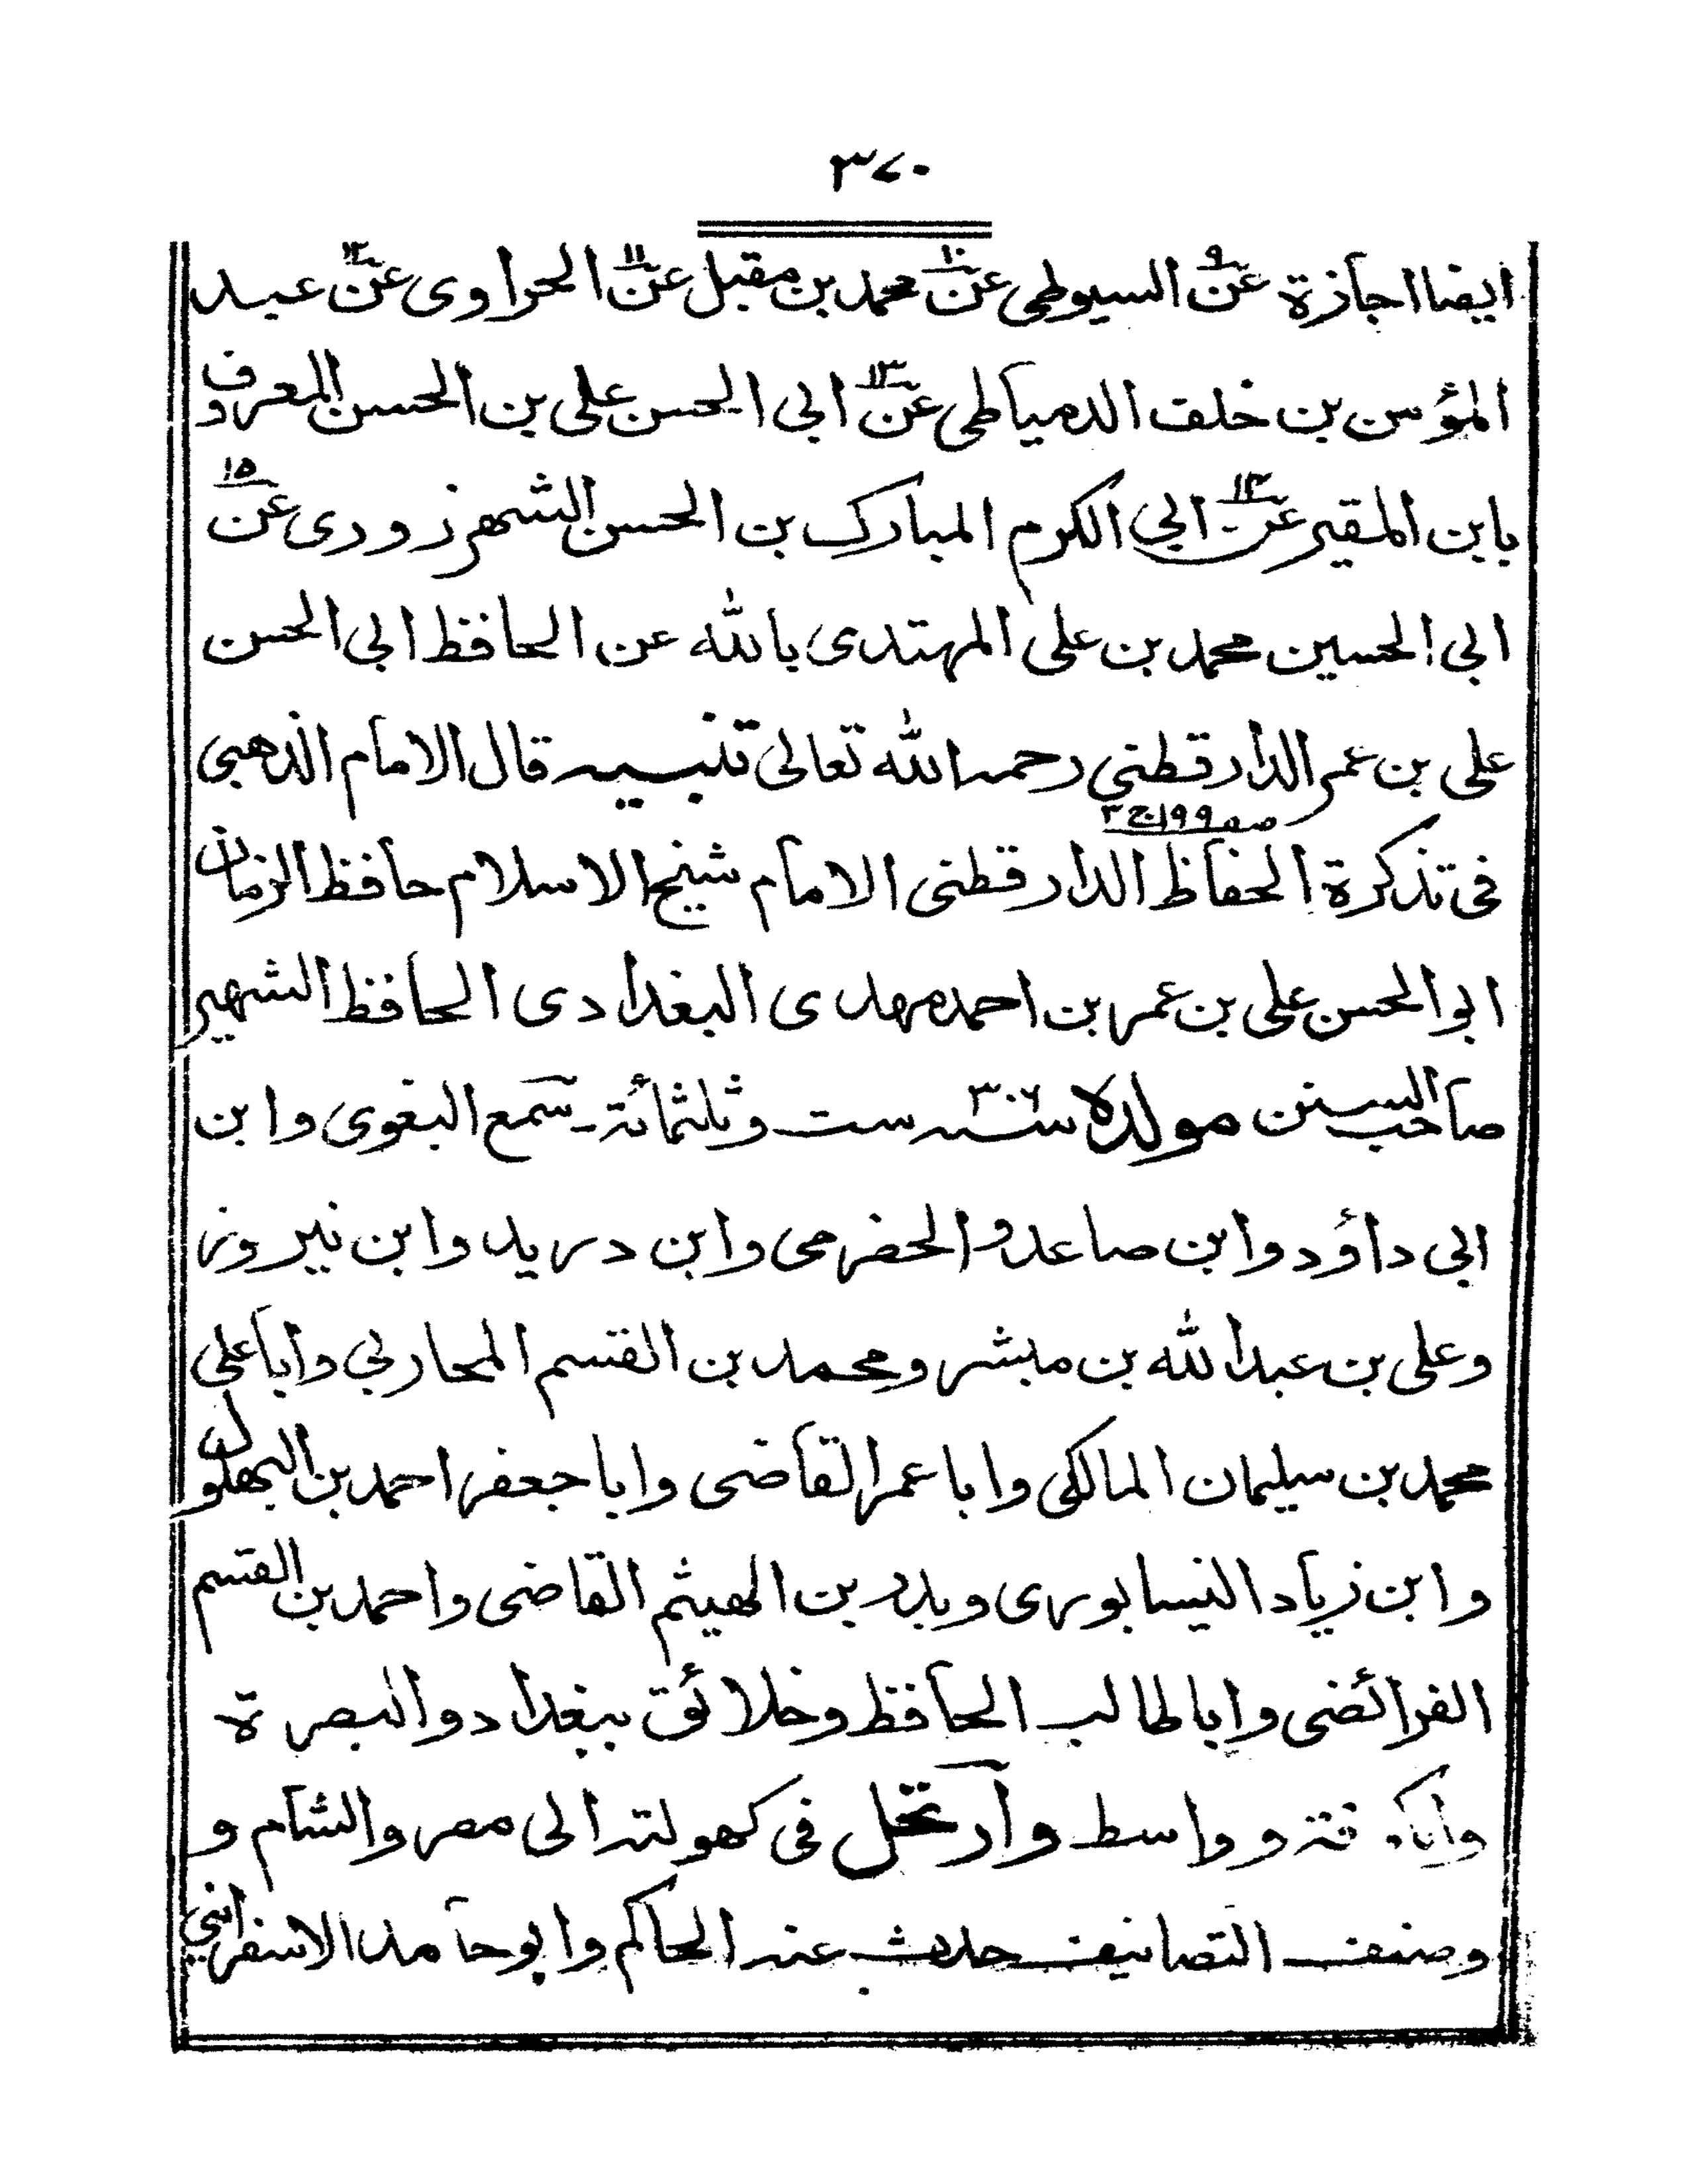 ٣٧٠
ايضا اجازة عن ٩ السيوطي عن ١٠ محمد بن مقبل عن ١١ الحراوى عن ١٢ عبد
المؤمن بن خلف الدمياطى عن ١٣ ابي الحسن على بن الحسن المعروف
بابن المقير عن ١٤ ابي الكرم المبارك بن الحسن الشهرزورى عن ١٥
ابي الحسين محمد بن على المهتدى بالله عن الحافظ ابي الحسن
على بن عمر الدارقطني رحمه الله تعالى تنبيه قال الامام الذهبي
صه ١٩٩ ج ٣
فى تذكرة الحفاظ الدارقطنى الامام شيخ الاسلام حافظ الزمان
ابو الحسن على بن عمر بن احمد مهدى البغدادى الحافظ الشهير
صاحب السنن مولده سنه ٣٠٦ ست وثلثمائة - سمع البغوى وابن
ابي داؤد وابن صاعد والحضرمى وابن دريد وابن نيروز
وعلى بن عبد الله بن مبشر ومحمد بن القسم المحاربي وابا على
محمد بن سليمان المالكى وابا عمر القاضى وابا جعفر احمد بن البهلول
وابن زياد النيسابورى وبدر بن الهيثم القاضى واحمد بن القسم
الفرائضى وابا طالب الحافظ وخلائق ببغداد والبصرة
وواسط وارتحل فى كهولته الى مصر والشام و
وصنف التصانيف حدث عنه الحاكم وابو حامد الاسفرائنى